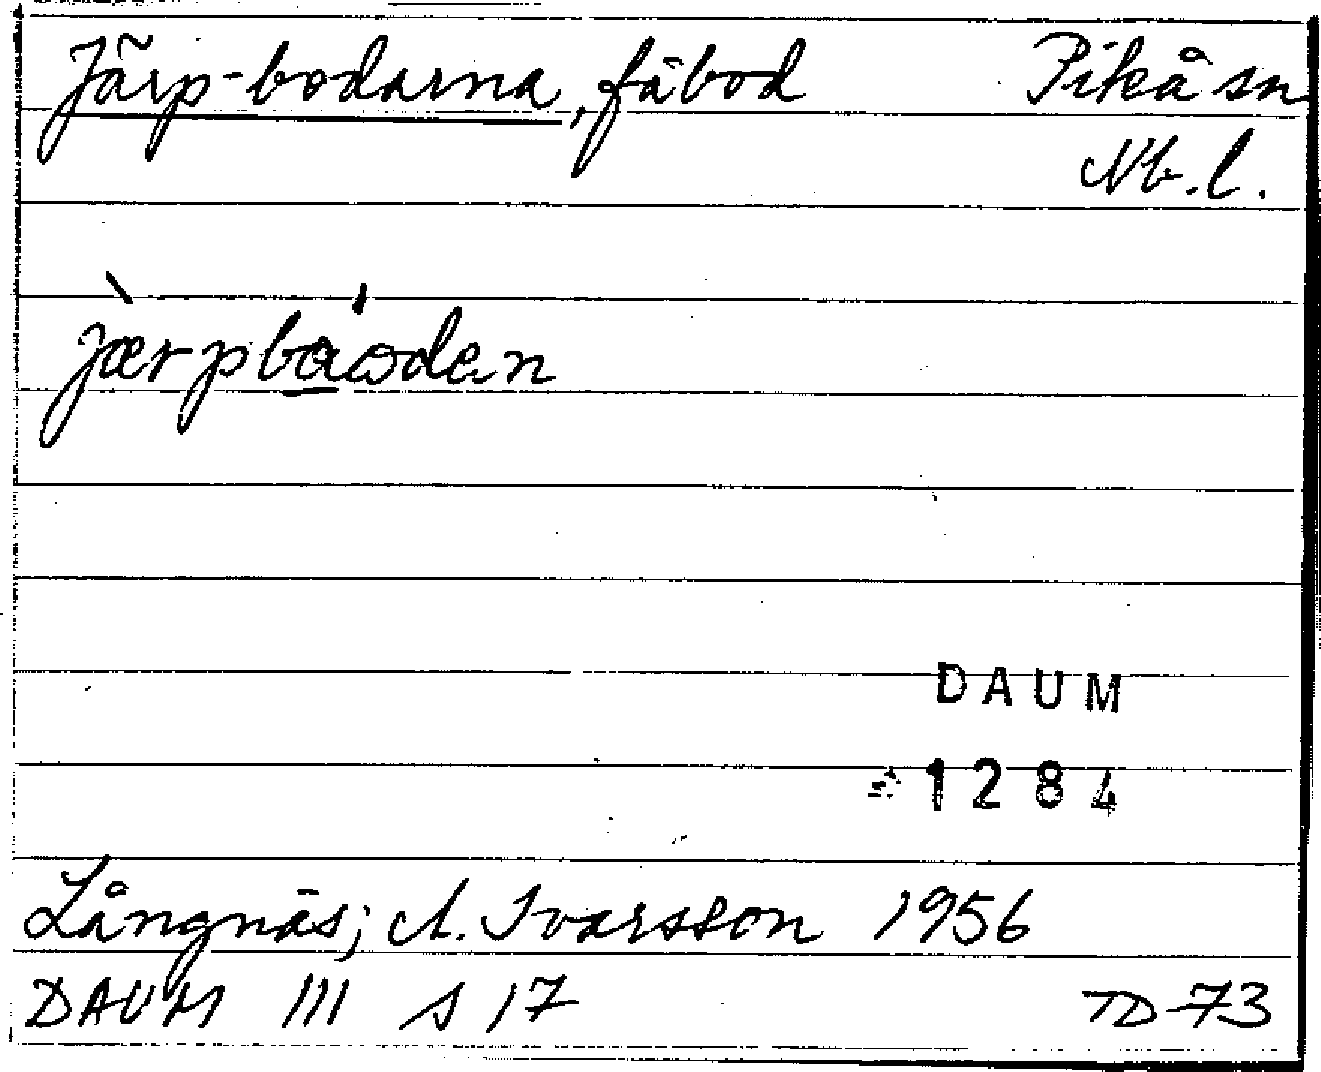 Järp-bodarna, fäbod Piteå sn
Nb. l.
jærpbåωden
DAUM
1284
Långnäs; A. Ivarsson 1956
DAUM III s 17 TD-73